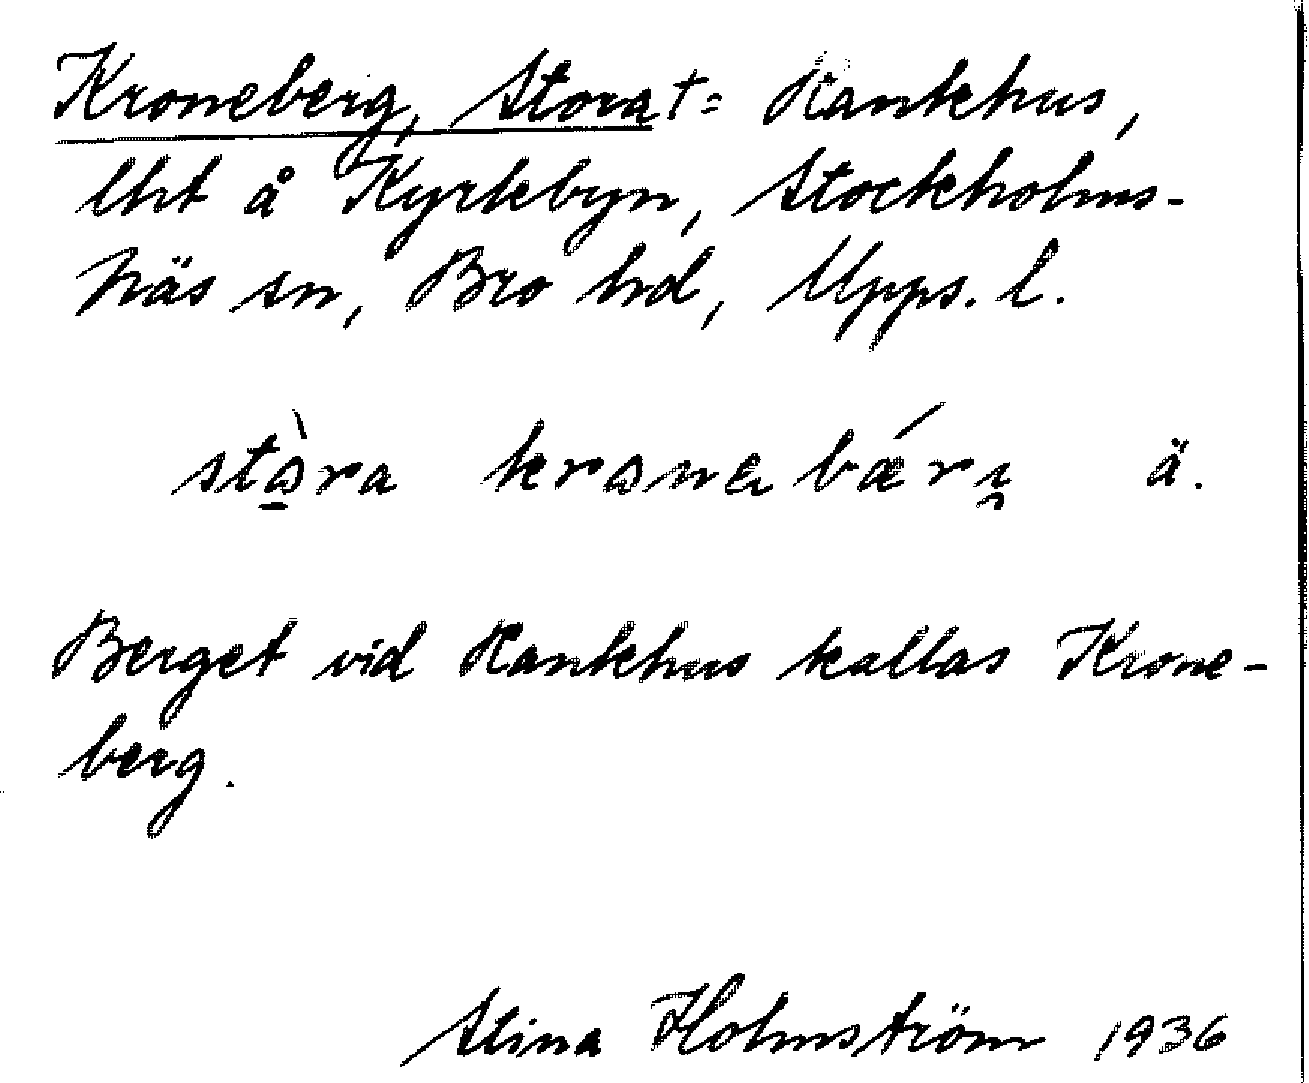 Kroneberg, Stora † = Kankhus,
lht å Kyrkbyn, Stockholms-
Näs sn, Bro hd, Upps. l.
stɷ̀ra krɷnebǽrı ä.
Berget vid Kankhus kallas Krone-
berg.
Stina Holmström 1936